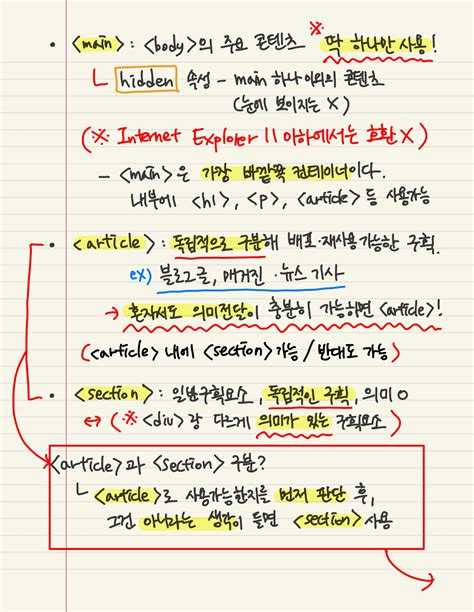 • <main> : <body>의 주요 콘텐츠 ※ 딱 하나만 사용!
ㄴ hidden 속성 - main 하나 이외의 콘텐츠
(눈에 보이지는 X)
(※ Internet Explorer 11 이하에서는 호환 X)
- <main>은 가장 바깥쪽 컨테이너이다.
내부에 <h1>, <p>, <article> 등 사용가능
• <article> : 독립적으로 구분해 배포·재사용 가능한 구획.
ex) 블로그글, 매거진·뉴스 기사
→ 혼자서도 의미전달이 충분히 가능하면 <article>!
(<article> 내에 <section>가능 / 반대도 가능)
• <section> : 일반구획요소, 독립적인 구획, 의미 O
↔ (※ <div>랑 다르게 의미가 있는 구획요소)
<article>과 <section> 구분?
ㄴ <article>로 사용가능한지을 먼저 판단 후,
그건 아니라는 생각이 들면 <section> 사용